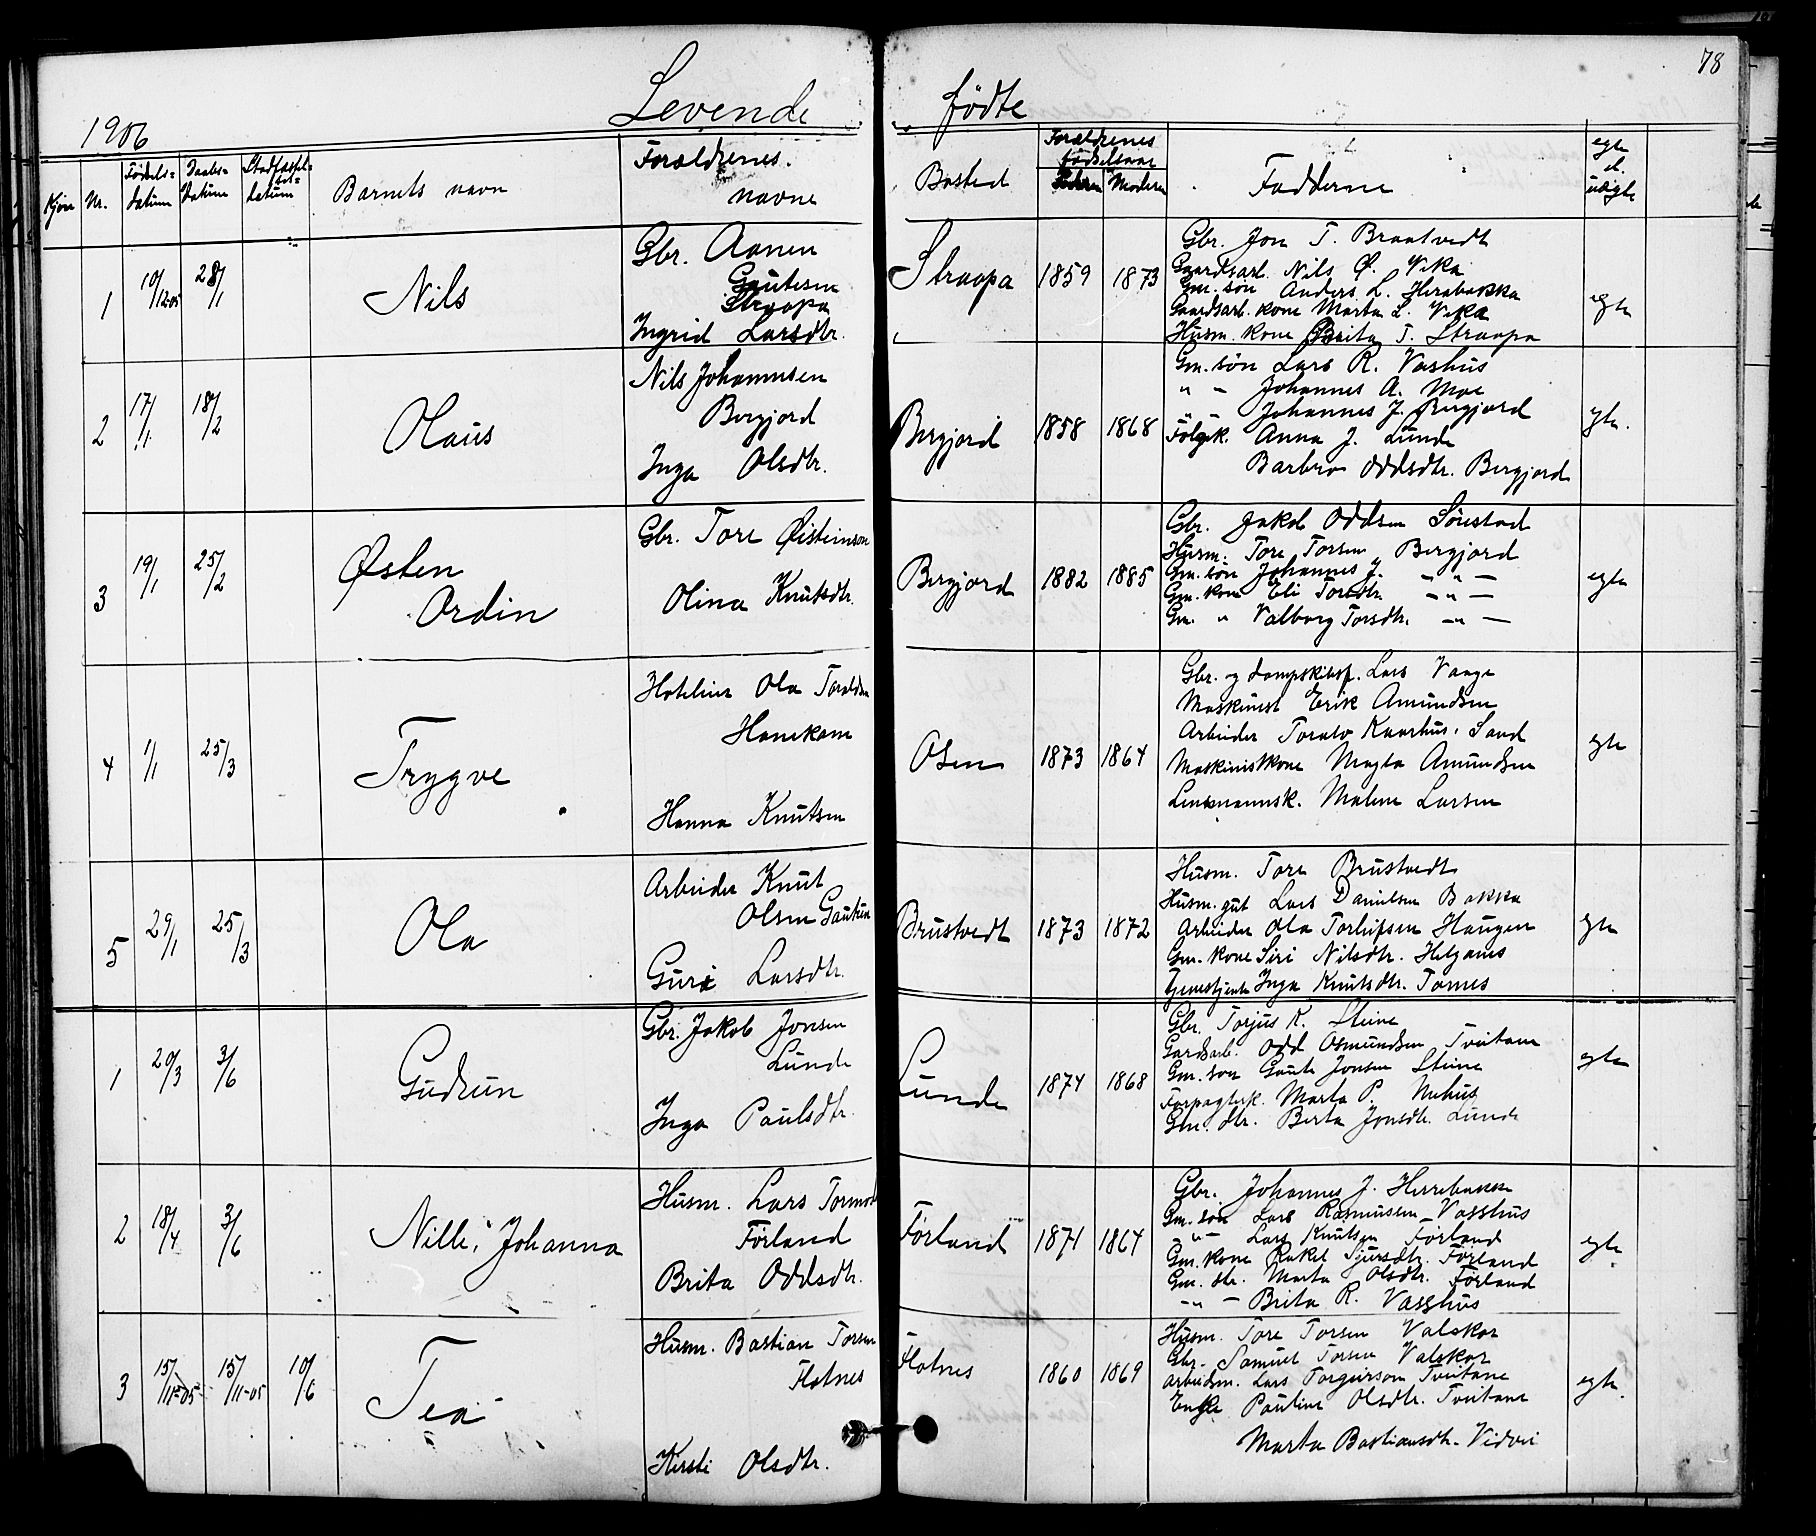 78
Levende fødte
1906
Kjøn Nr. Fødsels= datum Daabs= datum Barnets navn Forældrenes navne Bosted Forældrenes fødselsaar Faderen Moderen Fadderne egte el. uægte
1 10/12-05 28/1 Nils
Gbr. Aanen
Gautesen
Straapa
Ingrid Larsdtr.
Straapa 1859 1873
Gbr. Jon T. Braatvedt
Gaardsarb. Nils Ø. Vika
Gm. søn Anders L. Herabakka
Gaardsarb. kone Marta L. Vika
Husm. kone Brita T. Straapa
egte
2 17/1 18/2 Olaus
Nils Johannesen
Bergjord
Inga Olsdtr.
Bergjord 1858 1868
Gm. søn Lars R. Vashus
" - Johannes A. Moe
" - Johannes J. Bergjord
Følgek. Anna J. Lunde
Barbro Oddsdtr. Bergjord
egte.
3 19/1 25/2 Østen
Ordin
Gbr. Tore Øisteinson
Olina Knutsdtr.
Bergjord 1882 1885
Gbr. Jakob Oddsen Sørestad
Husm. Tore Torsen Bergjord
Gm. søn Johannes J. - " -
Gm. kone Eli Torsdtr. - " -
Gm. " Valborg Torsdtr. - " -
egte
4 1/1 25/3 Trygve
Hoteleier Ola Toraldsen
Hanekam
Hanna Knutsen
Osen 1873 1864
Gbr. og dampskibsf. Lars Vaage
Maskinist Erik Amundsen
Arbeider Torato Kaarhus, Sand
Maskinistkone Magta Amundsen
Lensmannsk. Malene Larsen
egte
5 29/1 25/3 Ola
Arbeider Knut
Olsen Gautun
Guri Larsdtr.
Brustvedt 1873 1872
Husm. Tore Brustvedt
Husm. gut Lars Danielsen Bakka
Arbeider Ola Torleifsen Haugen
Gm. kone Siri Nilsdtr. Helganes
Tjenestjente Inga Knutsdtr. Tornes
egte
1 20/3 3/6 Gudrun
Gbr. Jakob Jonsen
Lunde
Inga Paulsdtr.
Lunde 1874 1868
Gbr. Torjus K. Steine
Gardsarb. Odd Osmundsen Tveitane
Gm. søn Gaute Jonsen Steine
Forpagterk. Marta P. Nehus
Gm. dtr. Berta Jonsdtr. Lunde
egte
2 18/4 3/6 Nilli, Johanna
Husm. Lars Tormod
Førland
Brita Oddsdtr.
Førland 1871 1864
Gbr. Johannes J. Herrebakka
Gm. søn Lars Rasmussen Vasshus
- " - Lars Knutsen Førland
Gm. kone Rakel Sjursdtr. Førland
Gm. dtr. Marta Olsdtr. Førland
- " - Brita R. Vasshus
egte
3 15/11-05 15/11-05 10/6 Tea
Husm. Bastian Torsen
Flotnes
Kirsti Olsdtr.
Flotnes 1860 1869
Husm. Tore Torsen Valskor
Gbr. Samuel Torsen Valskor
Arbeidsm. Lars Torgeirson Tveitane
Enke Pauline Olsdtr. Tveitane
Marta Bastiansdtr. Vidvei
egte.